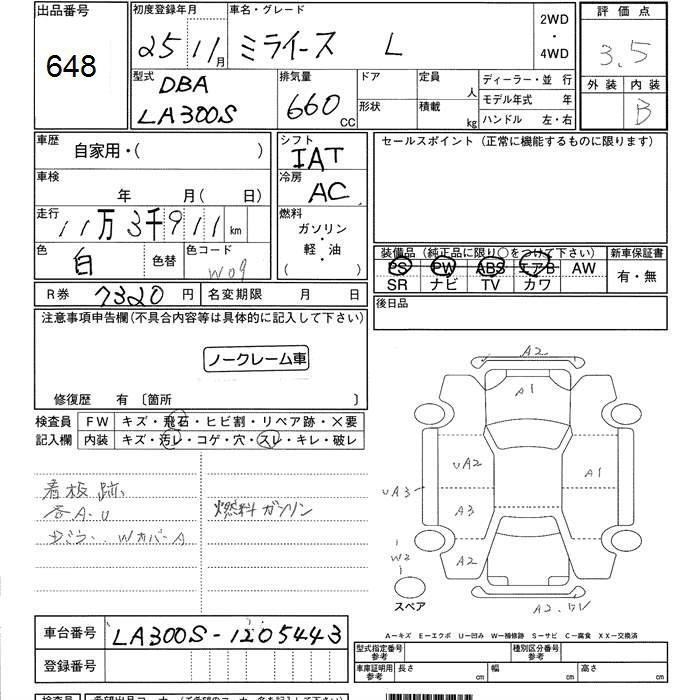 出品番号
648
初度登録年月
25 11月
車名・グレード
ミライース L
2WD
・
4WD
評価点
3.5
外装 内装
B
型式
DBA
LA300S
排気量
660 CC
ドア
形状
定員 人
積載 kg
ディーラー・並 行
モデル年式 年
ハンドル 左・右
車歴
自家用・( )
車検
年 月( 日)
走行
11万3千911 km
色
白
色替
色コード
W09
シフト
IAT
冷房
AC
燃料
ガソリン
・
軽・油
( )
セールスポイント (正常に機能するものに限ります)
装備品 (純正品に限り○をつけて下さい)
PS PW ABS エアB AW
SR ナビ TV カワ
新車保証書
有・無
後日品
R券 7320 円
名変期限 月 日
注意事項申告欄(不具合内容等は具体的に記入して下さい)
ノークレーム車
修復歴 有 〔箇所 〕
検査員
記入欄
FW キズ・飛石・ヒビ割・リペア跡・×要
内装 キズ・汚レ・コゲ・穴・スレ・キレ・破レ
看板跡
各A.U
燃料ガソリン
WカバーA
A2
A1
UA2
A1
UA3
A3
W2
A2
A2.
スペア
A-キズ E-エクボ U-凹み W-補修跡 S-サビ C-腐食 XX-交換済
車台番号
LA300S-1205443
登録番号
型式指定番号
参考
種別区分番号
参考
車庫証明用
参考
長さ cm
幅 cm
高さ cm